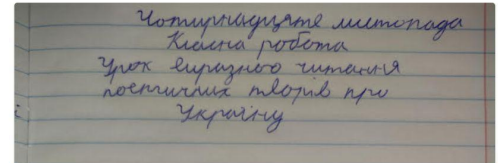 Чотирнадцяте листопада
Класна робота
Урок виразного читання
поетичних творів про
Україну